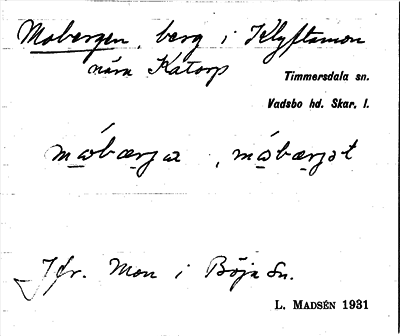 Mobergen, berg i Klyftamon
nära Katorp
Timmersdala sn.
Vadsbo hd. Skar. l.
Jfr. Mon i Böja sn.
L. MADSÉN 1931